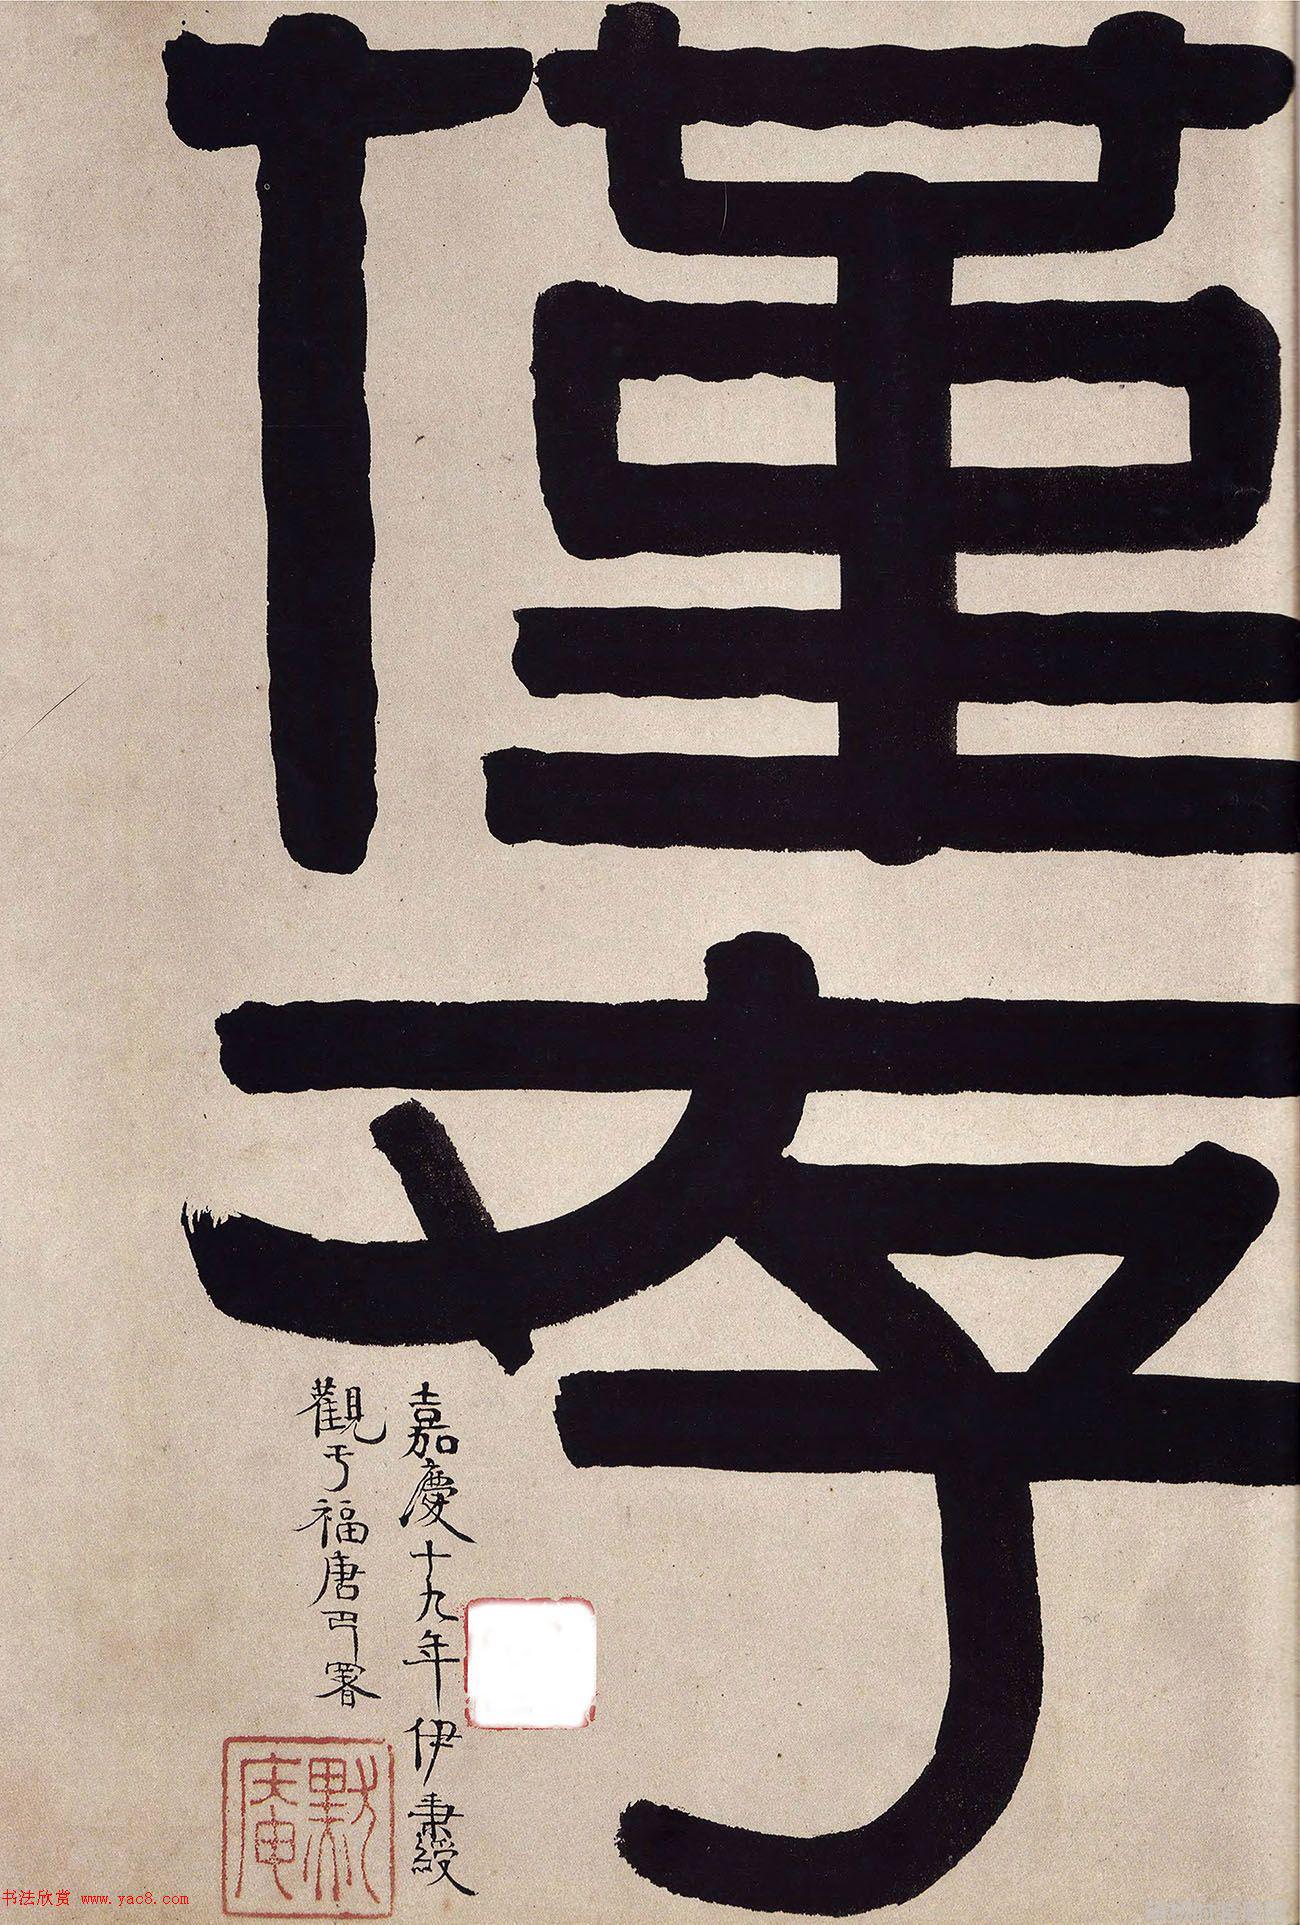 僅存
嘉慶十九年伊秉綬
觀亏福唐署
默庵
书法欣赏 www.yac8.com